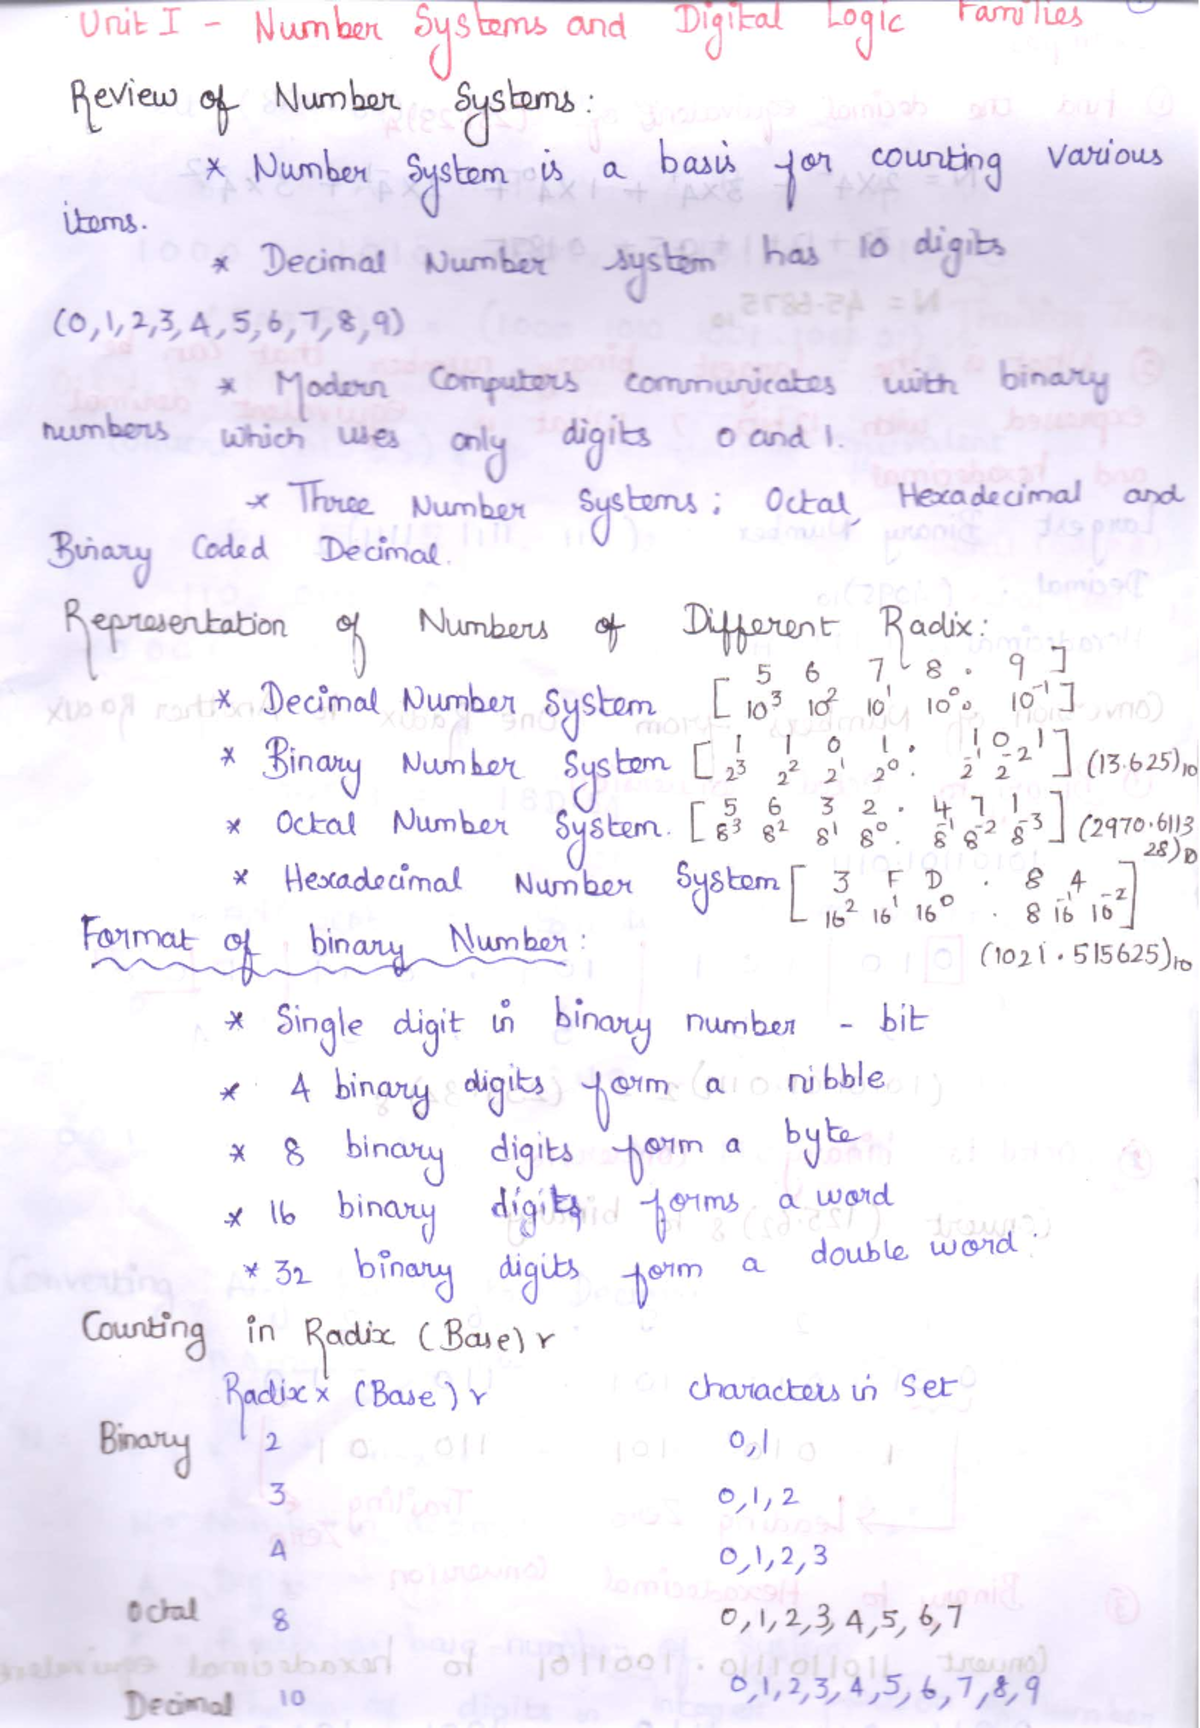 Unit I - Number Systems and Digital Logic Families
Review of Number Systems:
* Number System is a basis for counting various
items.
* Decimal Number system has 10 digits
(0,1,2,3,4,5,6,7,8,9)
* Modern Computers communicates with binary
numbers which uses only digits 0 and 1.
* Three Number Systems; Octal, Hexadecimal and
Binary Coded Decimal.
Representation of Numbers of Different Radix:
5 6 7 8 . 9
* Decimal Number System [10³ 10² 10¹ 10⁰. 10⁻¹]
1 1 0 1 . 1 0 1
* Binary Number System [2³ 2² 2¹ 2⁰. 2⁻¹ 2⁻²] (13.625)₁₀
5 6 3 2 . 4 7 1
* Octal Number System. [8³ 8² 8¹ 8⁰. 8⁻¹ 8⁻² 8⁻³] (2970.6113
28)₁₀
* Hexadecimal Number System [3 F D . 8 4
16² 16¹ 16⁰ . 8 16⁻¹ 16⁻²]
Format of binary Number:
(1021.515625)₁₀
* Single digit in binary number - bit
* 4 binary digits form a nibble
* 8 binary digits form a byte
* 16 binary digits forms a word
* 32 binary digits form a double word.
Counting in Radix (Base) r
Radix x (Base) r characters in Set
Binary 2 0,1
3 0,1,2
4 0,1,2,3
Octal 8 0,1,2,3,4,5,6,7
Decimal 10 0,1,2,3,4,5,6,7,8,9